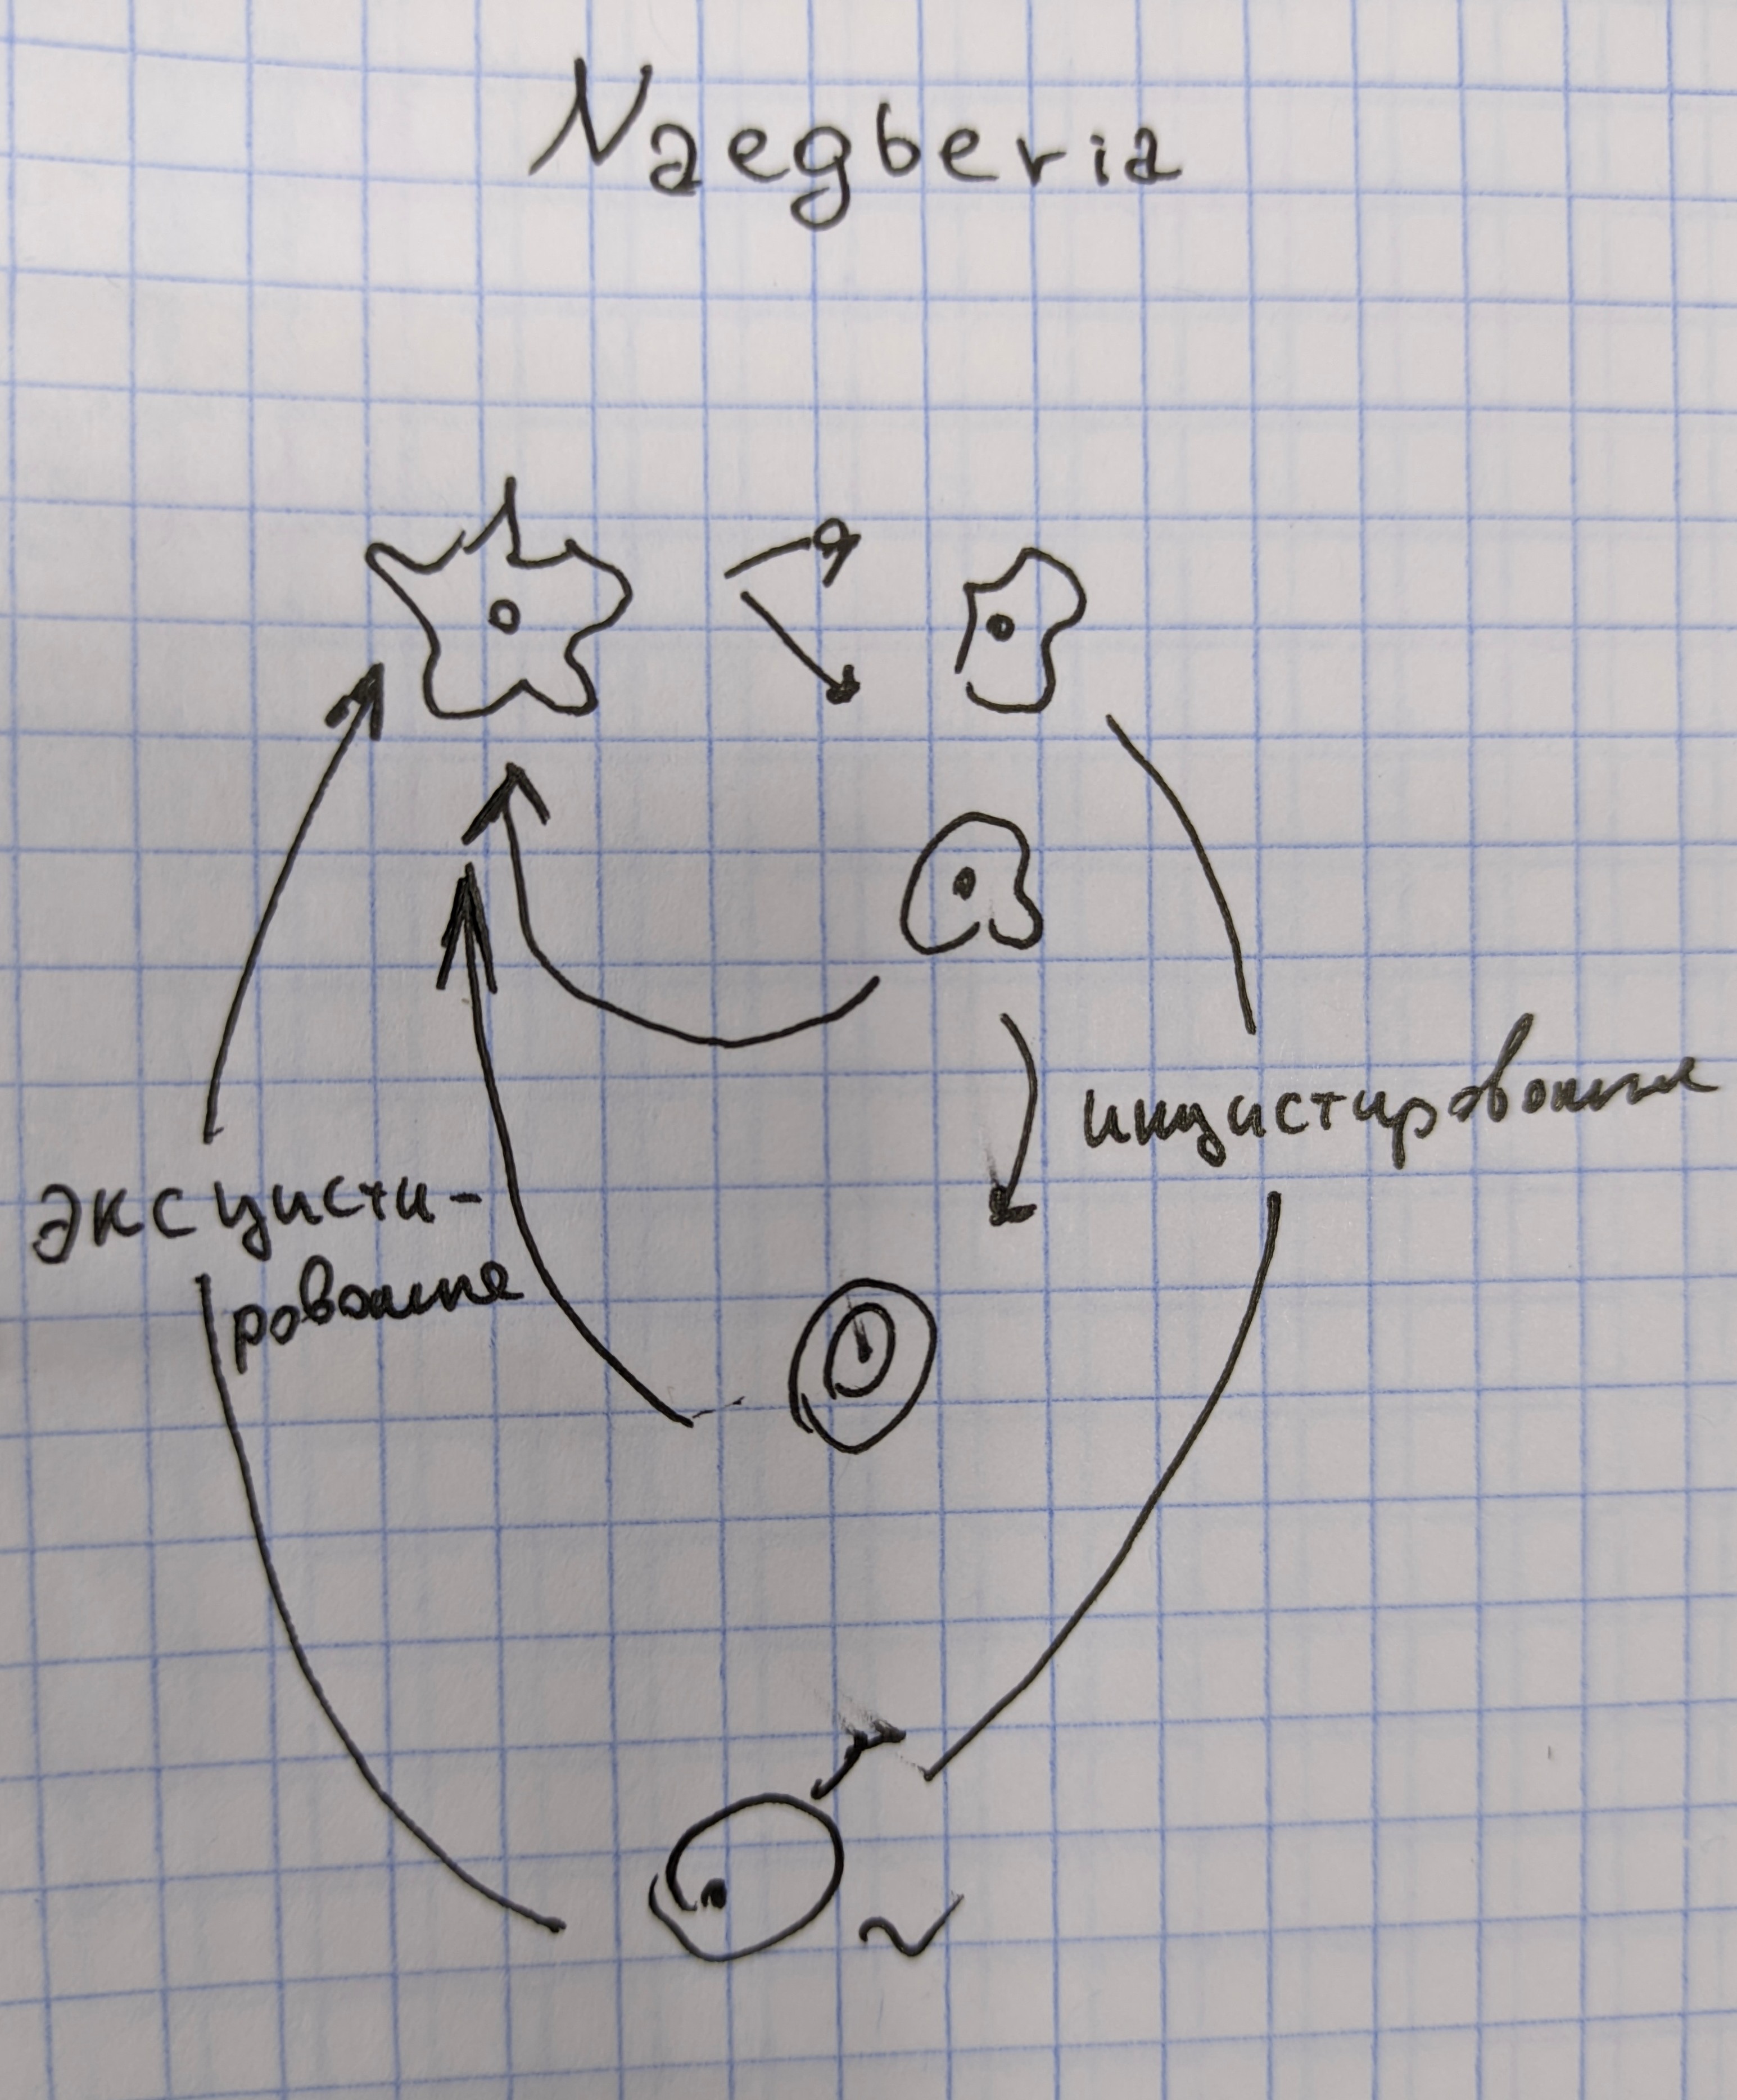 Naegberia
инцистирование
эксцисти-
рование